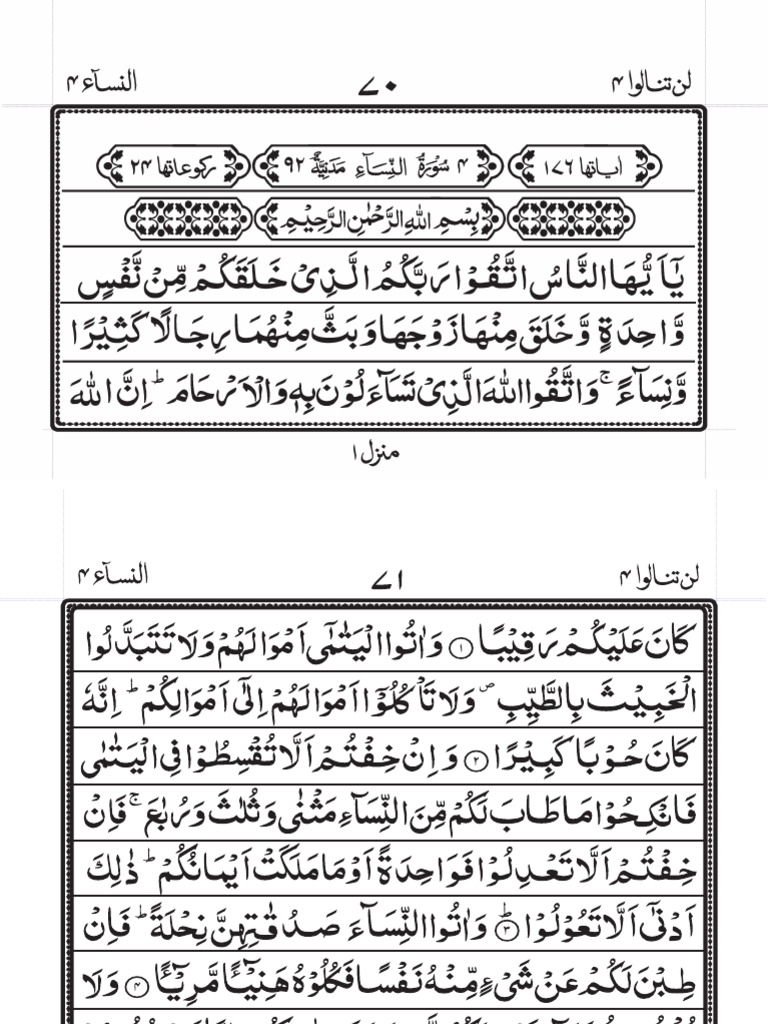 لن تنالوا ۴ ۷۰ النسآء ۴
اٰیاتها ۱۷۶ ۴ سُوْرَةُ النِّسَآءِ مَدَنِيَّةٌ ۹۲ رکوعاتها ۲۴
بِسْمِ اللّٰهِ الرَّحْمٰنِ الرَّحِيْمِ
يٰۤاَيُّهَا النَّاسُ اتَّقُوْا رَبَّكُمُ الَّذِيْ خَلَقَكُمْ مِّنْ نَّفْسٍ
وَّاحِدَةٍ وَّخَلَقَ مِنْهَا زَوْجَهَا وَبَثَّ مِنْهُمَا رِجَالًا كَثِيْرًا
وَّنِسَآءً ۚ وَاتَّقُوا اللّٰهَ الَّذِيْ تَسَآءَلُوْنَ بِهٖ وَالْاَرْحَامَ ؕ اِنَّ اللّٰهَ
منزل ۱
لن تنالوا ۴ ۷۱ النسآء ۴
كَانَ عَلَيْكُمْ رَقِيْبًا ۝۱ وَاٰتُوا الْيَتٰمٰۤى اَمْوَالَهُمْ وَلَا تَتَبَدَّلُوا
الْخَبِيْثَ بِالطَّيِّبِ ۪ وَلَا تَاْكُلُوْۤا اَمْوَالَهُمْ اِلٰۤى اَمْوَالِكُمْ ؕ اِنَّهٗ
كَانَ حُوْبًا كَبِيْرًا ۝۲ وَاِنْ خِفْتُمْ اَلَّا تُقْسِطُوْا فِي الْيَتٰمٰى
فَانْكِحُوْا مَا طَابَ لَكُمْ مِّنَ النِّسَآءِ مَثْنٰى وَثُلٰثَ وَرُبٰعَ ۚ فَاِنْ
خِفْتُمْ اَلَّا تَعْدِلُوْا فَوَاحِدَةً اَوْ مَا مَلَكَتْ اَيْمَانُكُمْ ؕ ذٰلِكَ
اَدْنٰۤى اَلَّا تَعُوْلُوْا ۝۳ؕ وَاٰتُوا النِّسَآءَ صَدُقٰتِهِنَّ نِحْلَةً ؕ فَاِنْ
طِبْنَ لَكُمْ عَنْ شَيْءٍ مِّنْهُ نَفْسًا فَكُلُوْهُ هَنِيْٓـًٔا مَّرِيْٓـًٔا ۝۴ وَلَا